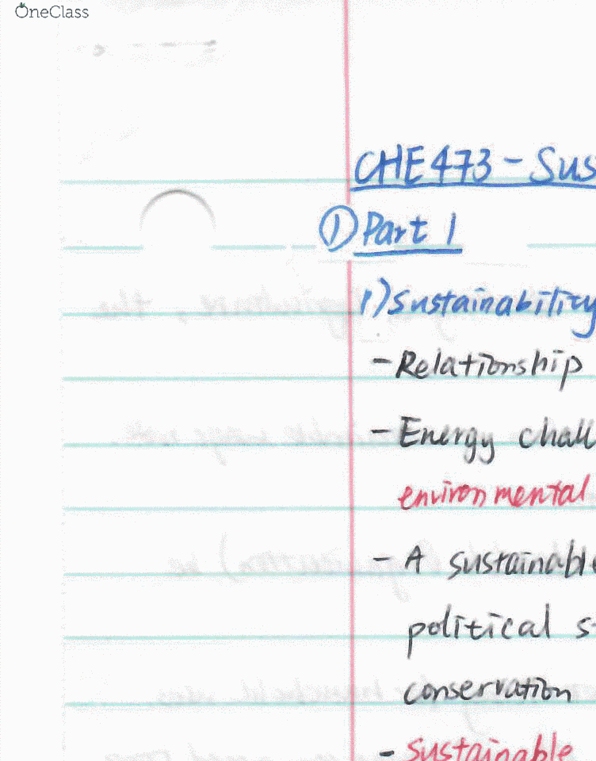 OneClass
CHE473-Sus
① Part 1
1) Sustainability
- Relationship
- Energy chall
environmental
- A sustainable
political s
conservation
- Sustainable